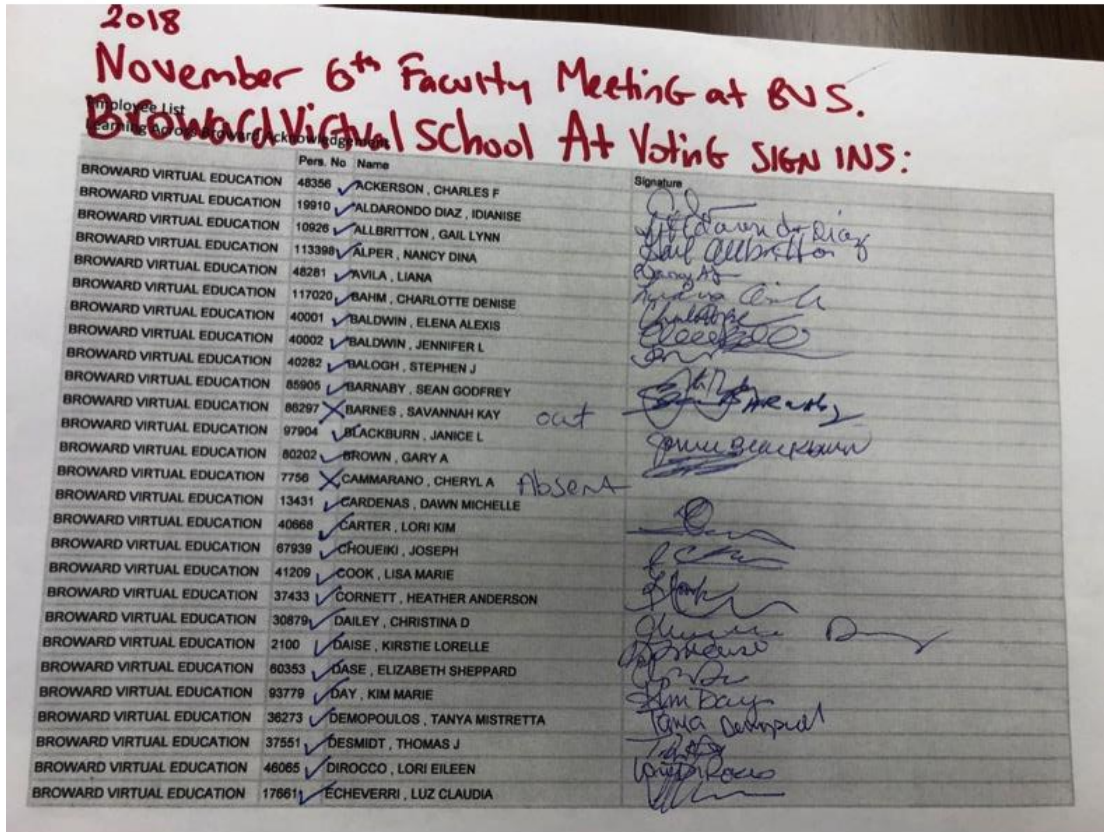 2018
November 6th Faculty Meeting at BVS.
Employee List
Learning Across Broward Acknowledgement
Broward Virtual School At Voting SIGN INS:
Pers. No Name Signature
BROWARD VIRTUAL EDUCATION 48356 ACKERSON , CHARLES F
BROWARD VIRTUAL EDUCATION 19910 ALDARONDO DIAZ , IDIANISE Aldarondo Diaz
BROWARD VIRTUAL EDUCATION 10926 ALLBRITTON , GAIL LYNN Gail Allbritton
BROWARD VIRTUAL EDUCATION 113398 ALPER , NANCY DINA
BROWARD VIRTUAL EDUCATION 48281 AVILA , LIANA
BROWARD VIRTUAL EDUCATION 117020 BAHM , CHARLOTTE DENISE
BROWARD VIRTUAL EDUCATION 40001 BALDWIN , ELENA ALEXIS
BROWARD VIRTUAL EDUCATION 40002 BALDWIN , JENNIFER L
BROWARD VIRTUAL EDUCATION 40282 BALOGH , STEPHEN J
BROWARD VIRTUAL EDUCATION 85905 BARNABY , SEAN GODFREY
BROWARD VIRTUAL EDUCATION 86297 BARNES , SAVANNAH KAY out
BROWARD VIRTUAL EDUCATION 97904 BLACKBURN , JANICE L Janice Blackburn
BROWARD VIRTUAL EDUCATION 80202 BROWN , GARY A
BROWARD VIRTUAL EDUCATION 7756 CAMMARANO , CHERYL A Absent
BROWARD VIRTUAL EDUCATION 13431 CARDENAS , DAWN MICHELLE
BROWARD VIRTUAL EDUCATION 40668 CARTER , LORI KIM
BROWARD VIRTUAL EDUCATION 67939 CHOUEIKI , JOSEPH
BROWARD VIRTUAL EDUCATION 41209 COOK , LISA MARIE
BROWARD VIRTUAL EDUCATION 37433 CORNETT , HEATHER ANDERSON
BROWARD VIRTUAL EDUCATION 30879 DAILEY , CHRISTINA D
BROWARD VIRTUAL EDUCATION 2100 DAISE , KIRSTIE LORELLE
BROWARD VIRTUAL EDUCATION 60353 DASE , ELIZABETH SHEPPARD
BROWARD VIRTUAL EDUCATION 93779 DAY , KIM MARIE Kim Day
BROWARD VIRTUAL EDUCATION 36273 DEMOPOULOS , TANYA MISTRETTA
BROWARD VIRTUAL EDUCATION 37551 DESMIDT , THOMAS J
BROWARD VIRTUAL EDUCATION 46065 DIROCCO , LORI EILEEN
BROWARD VIRTUAL EDUCATION 17661 ECHEVERRI , LUZ CLAUDIA